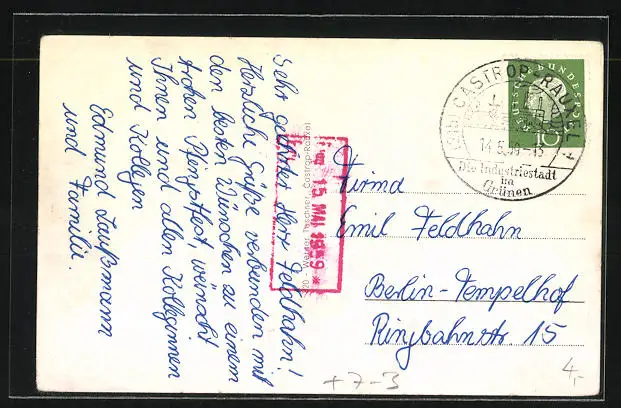 Sehr geehrter Herr Feldhahn!
Herzliche Grüße verbunden mit
den besten Wünschen zu einem
frohen Pfingstfest, wünscht
Ihnen und allen Kolleginnen
und Kollegen
Edmund Laußmann
und Familie.
Werner Taschner, Castrop-Rauxel
15. MAI 1959 *
DEUTSCHE BUNDESPOST
10
CASTROP-RAUXEL
14.5.59-18
Die Industriestadt
im
Grünen
Firma
Emil Feldhahn
Berlin-Tempelhof
Ringbahnstr. 15
+7-3
4,-